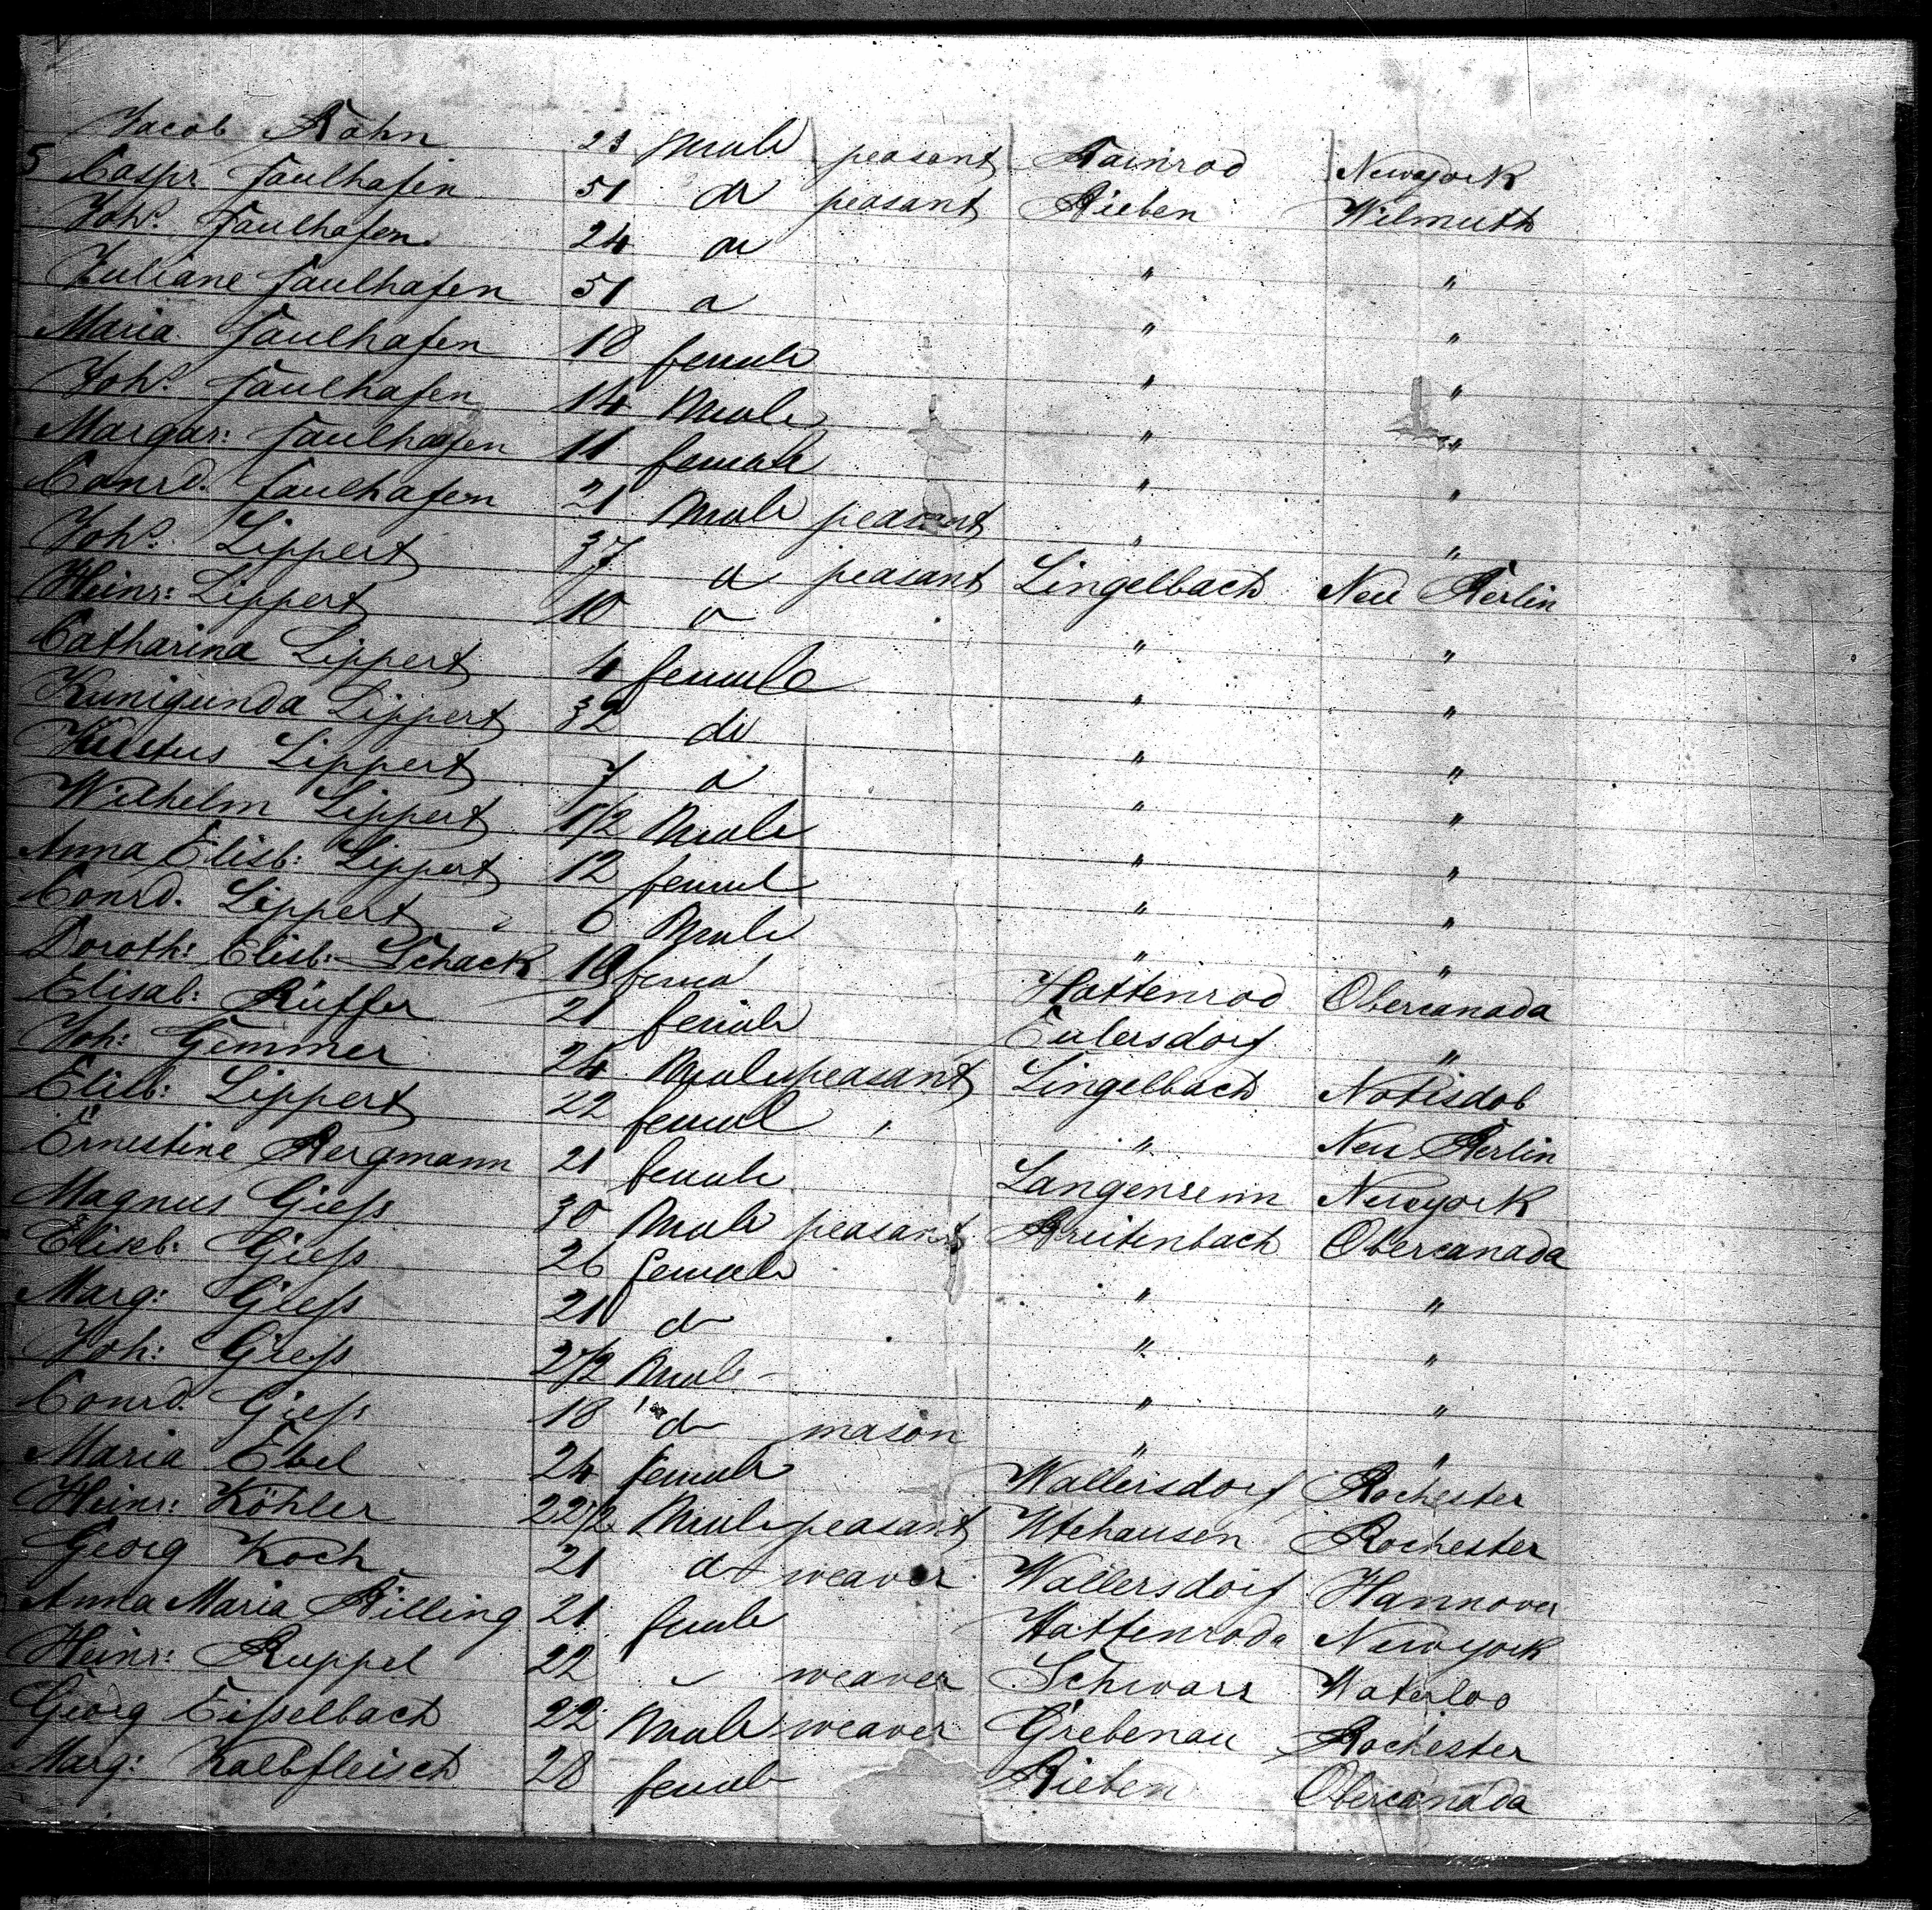 Jacob Rahn 23 Male peasant Rainrod Newyork
5 Caspr Faulhafen 51 do peasant Bieben Wilmuth
Johs. Faulhafen 24 do " "
Juliane Faulhafen 51 do " "
Maria Faulhafen 18 female " "
Johs. Faulhafen 14 Male " "
Margar: Faulhafen 11 female " "
Conrd. Faulhafen 21 Male peasant " "
Johs: Lippert 37 do peasant Lingelbach Neu Berlin
Heinr: Lippert 10 do " "
Catharina Lippert 4 female " "
Kunigunda Lippert 32 do " "
Justus Lippert 7 do " "
Wilhelm Lippert 1/2 Male " "
Anna Elisb: Lippert 12 femal " "
Conrd. Lippert 6 Male " "
Doroth: Elisb: Schack 18 femal Hattenrod Obercanada
Elisab: Rüffer 21 female Eulersdorf "
Joh: Gemmer 24 Male peasant Lingelbach
Elisb: Lippert 22 femal " Neu Berlin
Ernestine Bergmann 21 female Newyork
Magnus Gieß 30 Male peasant Breitenbach Obercanada
Elisb: Gieß 26 female " "
Marg: Gieß 21 do " "
Joh: Gieß 2 1/2 Male " "
Conrd. Gieß 18 do mason " "
Maria Ebel 24 female Wallersdorf Rochester
Heinr: Köhler 22 1/2 Male peasant Rochester
Georg Koch 21 do weaver Wallersdorf Hannover
Anna Maria Billing 21 female Hattenroda Newyork
Heinr: Ruppel 22 " weaver Schwarz Waterloo
Georg Eißelbach 22 Male weaver Grebenau Rochester
Marg: Kalbfleisch 28 female Bieben Obercanada